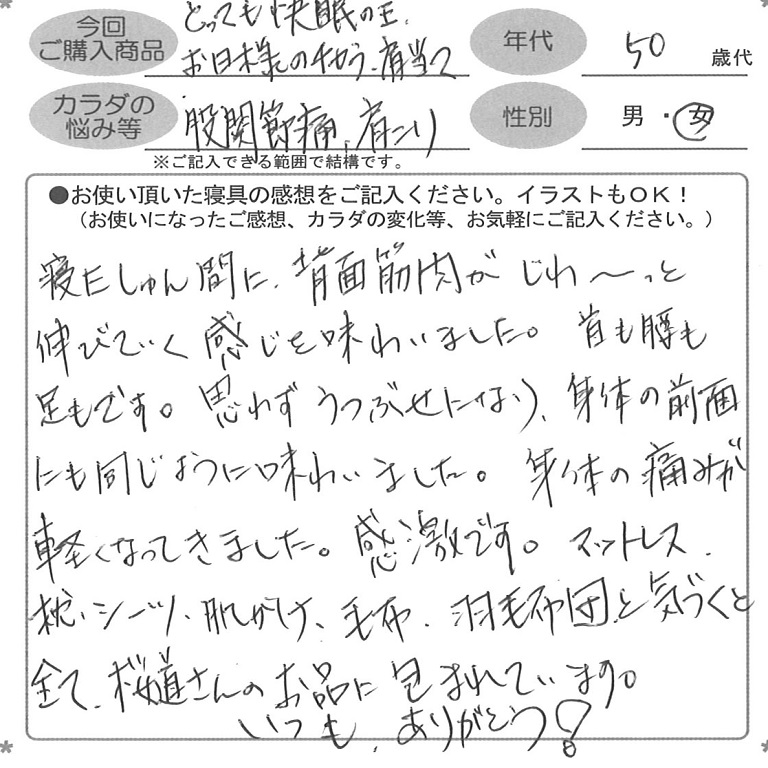 今回
ご購入商品
とっても快眠の王、
お日様のチカラ、肩当て
年代
50
歳代
カラダの
悩み等
股関節痛、肩こり
性別
男・女
※ご記入できる範囲で結構です。
●お使い頂いた寝具の感想をご記入ください。イラストもOK!
(お使いになったご感想、カラダの変化等、お気軽にご記入ください。)
寝たしゅん間に、背面筋肉がじわ〜っと
伸びていく感じを味わいました。首も腰も
足もです。思わずうつぶせになり、身体の前面
にも同じように味わいました。身体の痛みが
軽くなってきました。感激です。マットレス、
枕、シーツ、肌がけ、毛布、羽毛布団と気づくと
全て、桜道さんのお品に包まれています。
いつも、ありがとう!